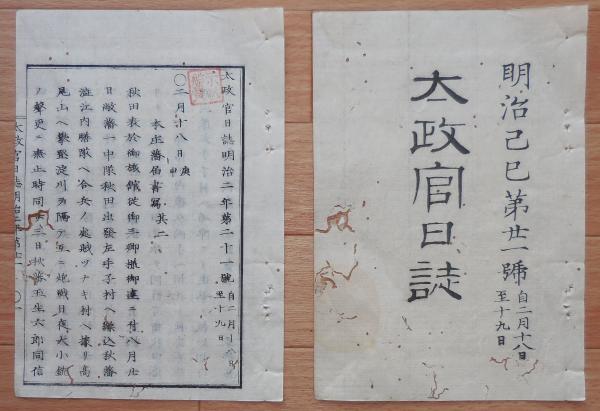 明治己巳第廿一號
自二月十八日
至十九日
太政官日誌
太政官日誌明治二年第二十一號
自二月十八日
至十九日
〇二月十八日
庚
申
本庄藩伯書寫 其二
秋田表於御旅館従御三卿被御達ニ付八月廿
日敝藩一中隊秋田出發左手子村ヘ繰込秋藩
澁江内膳隊ヘ合兵ノ處賊ツナキ村ヘ據リ高
尾山ヘ襲
淀川ヲ隔テ互ニ炮戦日夜大小銃
ノ聲更ニ無止時同廿三日秋藩玉生六郎同信
太政官日誌明治二年第廿一
〇一